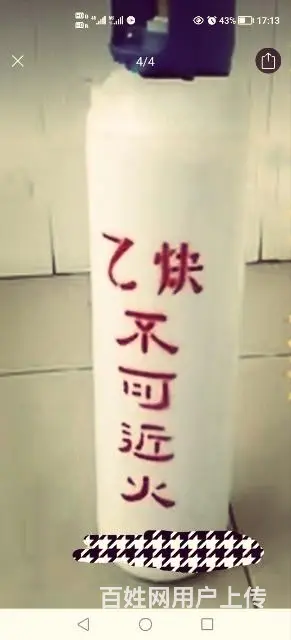 43% 17:13
4/4
乙炔
不
可
近
火
百姓网用户上传